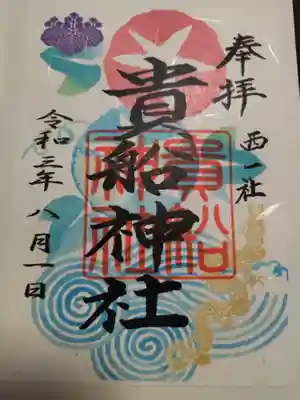 奉拝
西一社
貴船神社
貴船
神社
令和三年 八月一日